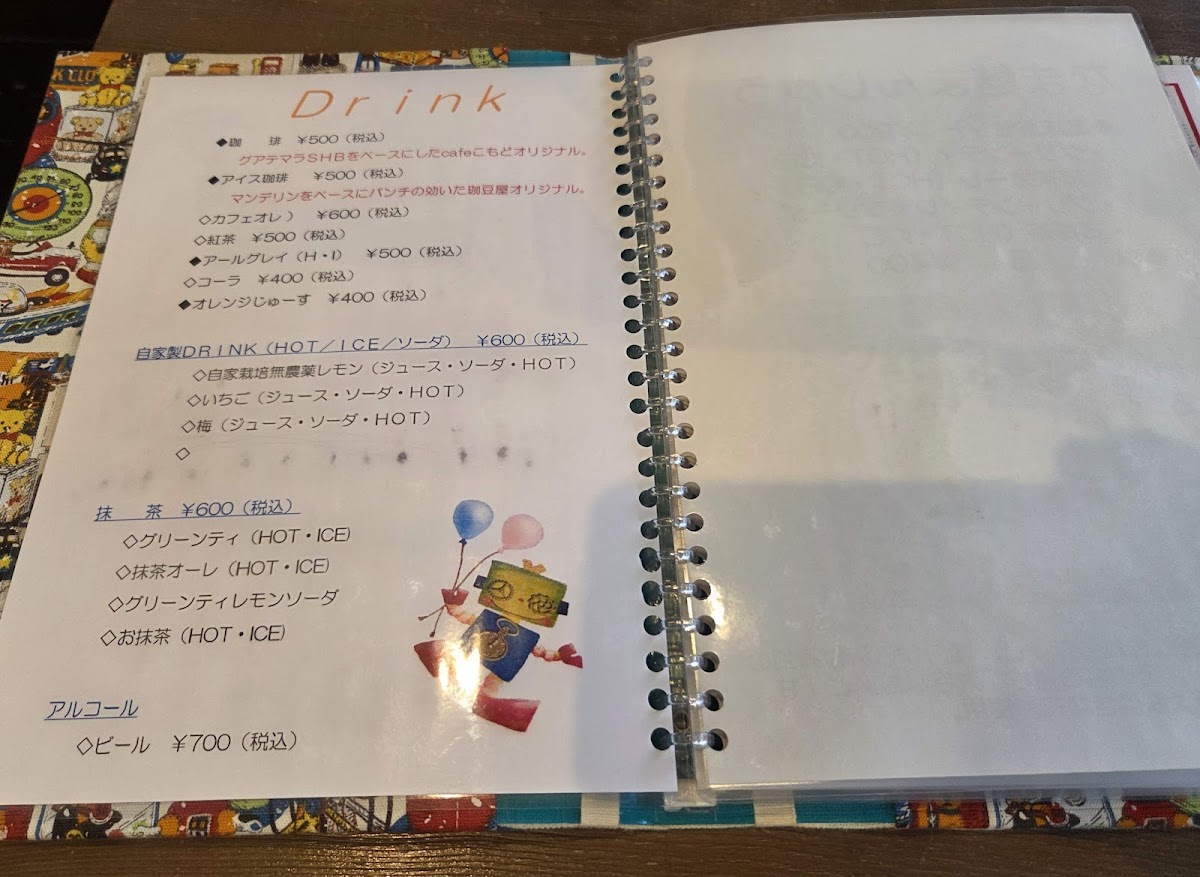 Drink
◆珈　琲　¥500（税込）
グアテマラSHBをベースにしたcafeこもどオリジナル。
◆アイス珈琲　¥500（税込）
マンデリンをベースにパンチの効いた珈豆屋オリジナル。
◇カフェオレ）　¥600（税込）
◇紅茶　¥500（税込）
◆アールグレイ（H・I）　¥500（税込）
◇コーラ　¥400（税込）
◆オレンジじゅーす　¥400（税込）
自家製DRINK（HOT／ICE／ソーダ）　¥600（税込）
◇自家栽培無農薬レモン（ジュース・ソーダ・HOT）
◇いちご（ジュース・ソーダ・HOT）
◇梅（ジュース・ソーダ・HOT）
◇
抹　茶　¥600（税込）
◇グリーンティ（HOT・ICE）
◇抹茶オーレ（HOT・ICE）
◇グリーンティレモンソーダ
◇お抹茶（HOT・ICE）
アルコール
◇ビール　¥700（税込）